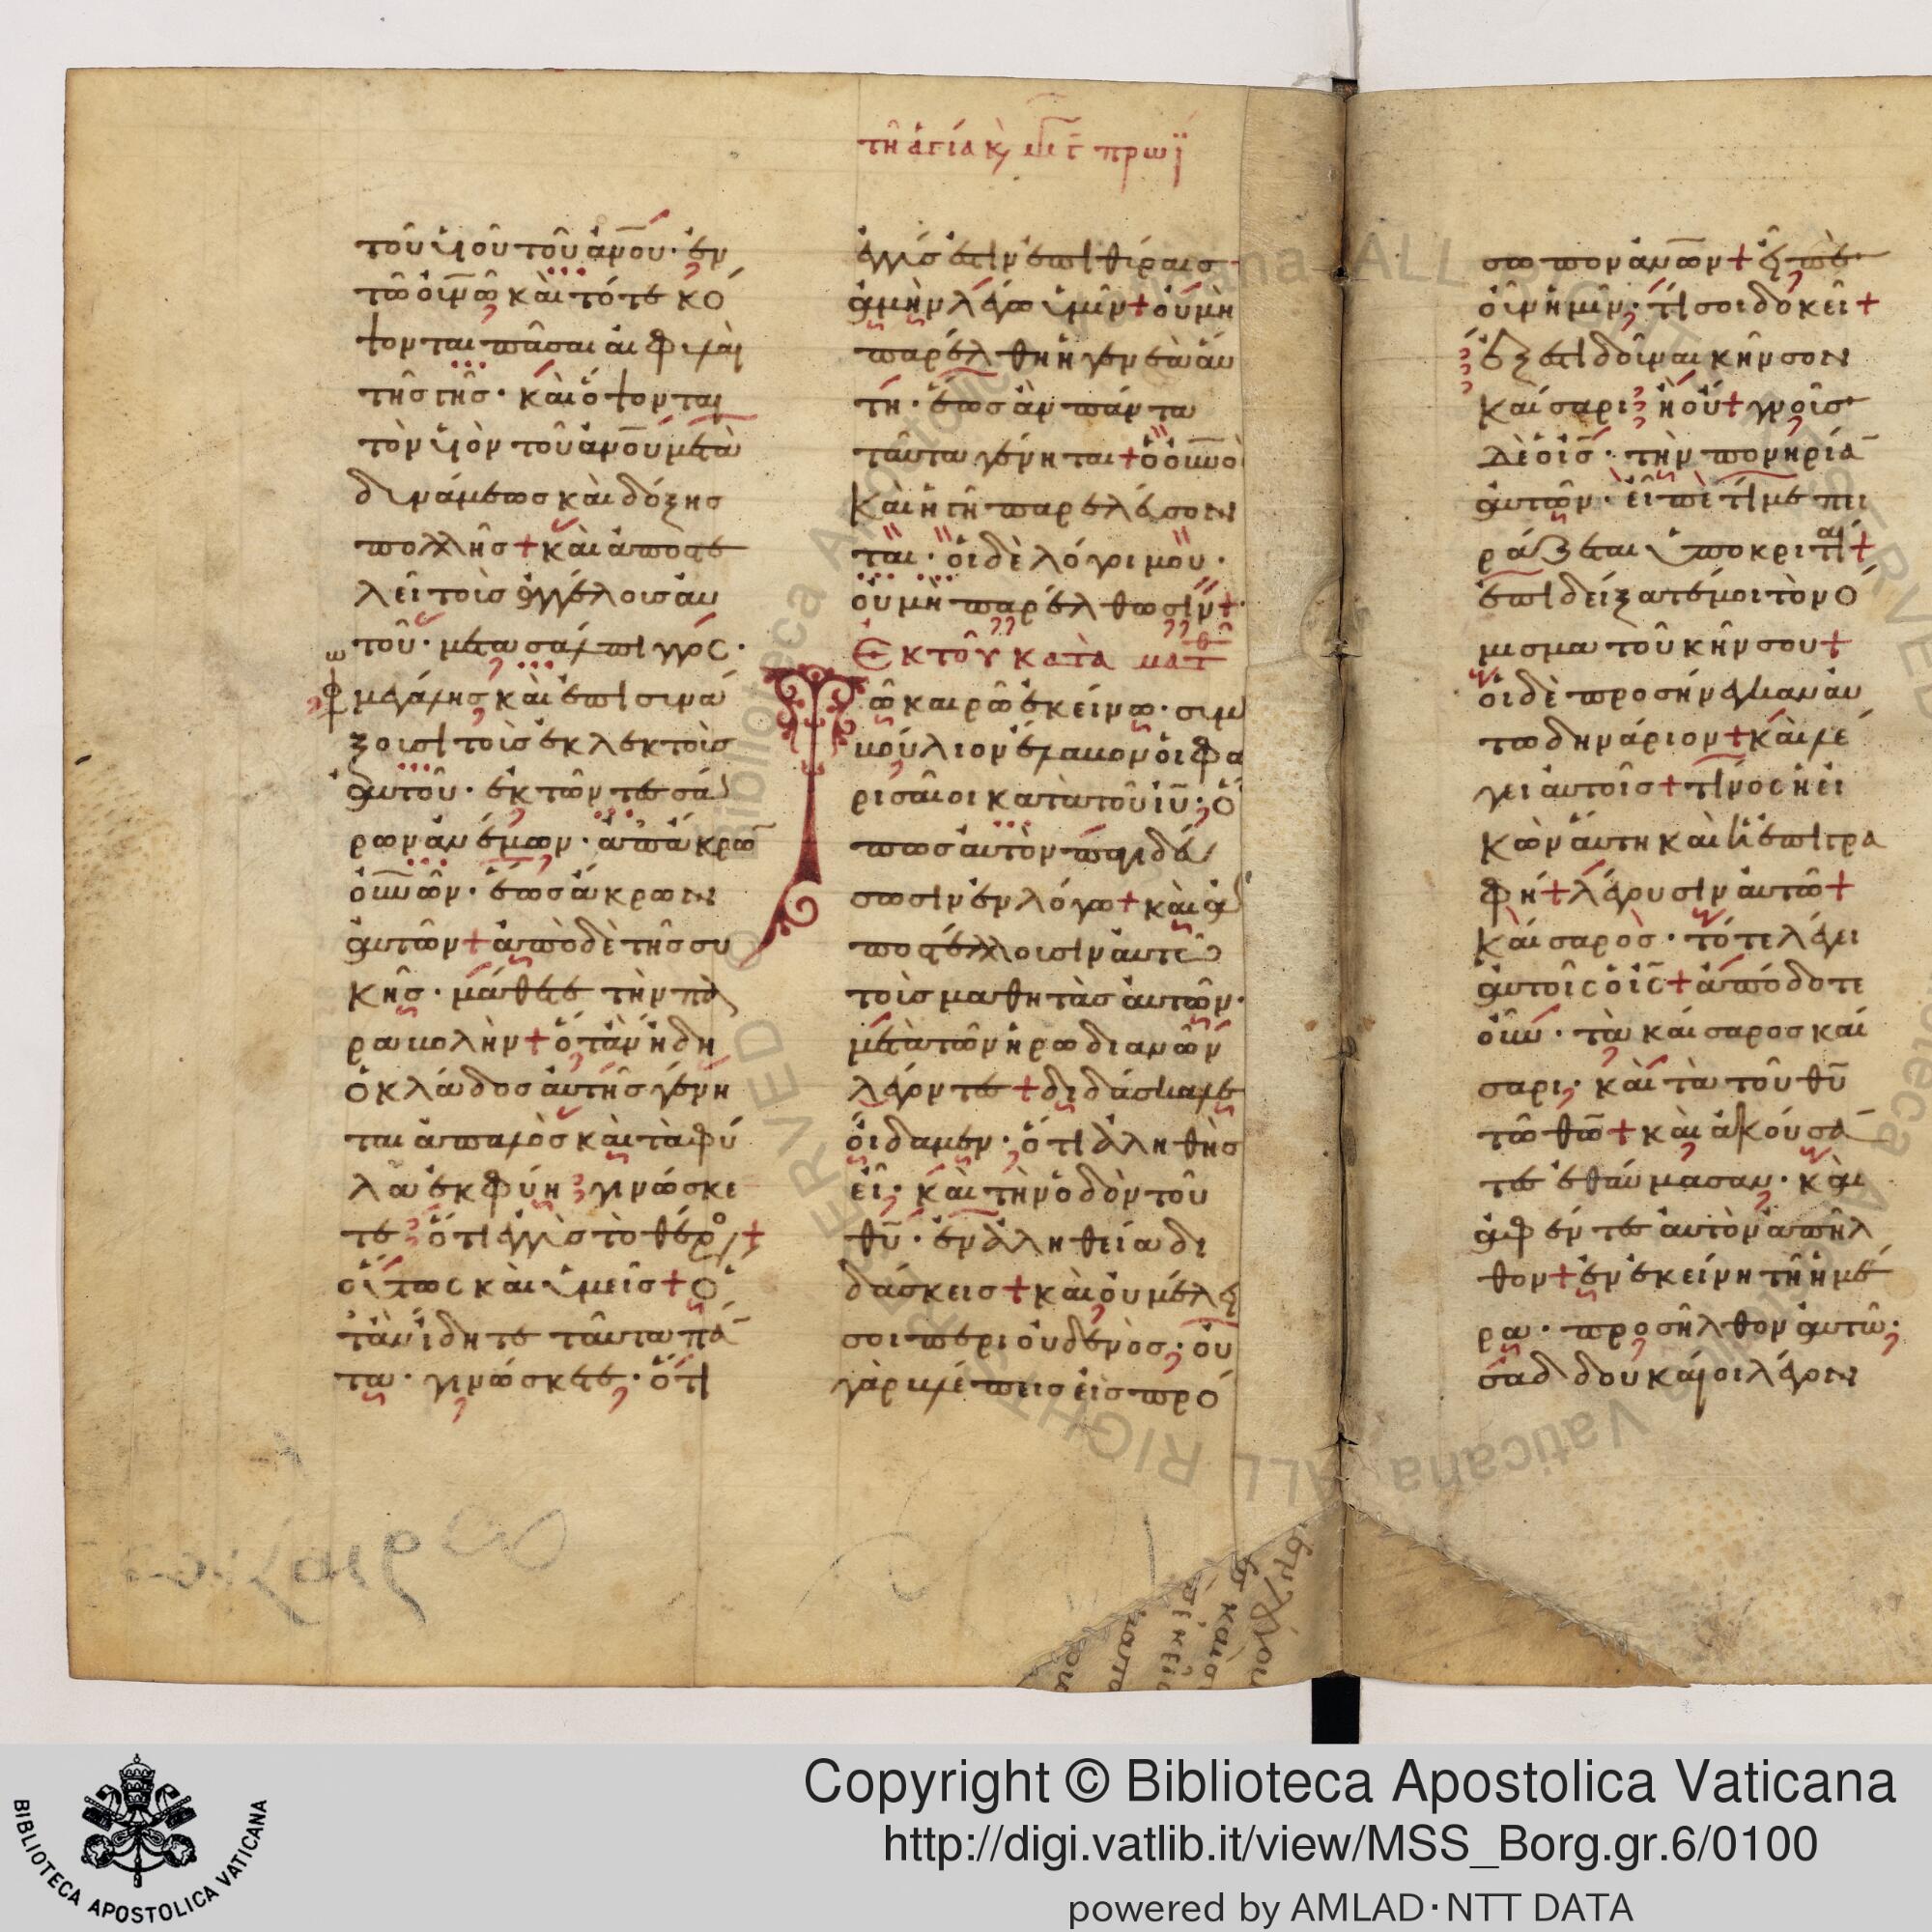 τῆ ἁγία κ, πρωῒ
τοῦ υἱοῦ τοῦ ἀνου· ἐν
τῶ οὐνῶ καὶ τότε κό
ψονται πᾶσαι αἱ φυλαὶ
τῆς γῆς· καὶ ὄψονται
τὸν υἱὸν τοῦ ἀνου μετὰ
δυνάμεως καὶ δόξης
πολλῆς + καὶ ἀποστε
λεῖ τοὺς ἀγγέλους αὐ
τοῦ· μετὰ σάλπιγγος·
φω
μεγάλης καὶ ἐπισυνά
ξουσι τοὺς ἐκλεκτοὺς
αὐτοῦ· ἐκ τῶν τεσσά
ρων ἀνέμων· ἀπ' ἄκρω
οὐνῶν· ἕως ἄκρων
αὐτῶν + ἀπὸ δὲ τῆς συ
κῆς· μάθετε τὴν πα
ραβολὴν + ὅταν ἤδη
ὁ κλάδος αὐτῆς γένη
ται ἁπαλὸς καὶ τὰ φύ
λα ἐκφύη γινώσκε
τε ὅτι ἐγγὺς τὸ θέρος +
οὕτως καὶ ὑμεῖς + ὅ
ταν ἴδητε ταῦτα πά
τα· γινώσκετε· ὅτι
ἐγγύς ἐστιν ἐπὶ θύραις
ἀμὴν λέγω ὑμῖν + οὐ μὴ
παρέλθη ἡ γενεὰ αὕ
τη· ἕως ἂν πάντα
ταῦτα γένηται + ὁ οὐνὸ
καὶ ἡ γῆ παρελέυσον
ται· οἱ δὲ λόγοι μου·
οὐ μὴ παρέλθωσιν +
Ἐκ τοῦ κατὰ ματθ
Τῶ καιρῶ ἐκείνω· συμ
βούλιον ἔλαβον οἱ φα
ρισαῖοι κατὰ τοῦ ιυ· ὅ
πως αὐτὸν παγιδεύ
σωσιν ἐν λόγω + καὶ ἀ
ποστέλλουσιν αὐτῶ
τοὺς μαθητὰς αὐτῶν·
μετὰ τῶν ἡρωδιανῶν
λέγοντες + διδάσκαλε
οἴδαμεν· ὅτι ἀληθὴς
εἶ· καὶ τὴν ὁδὸν τοῦ
θυ· ἐν ἀληθεία δι
δάσκεις + καὶ οὐ μέλει
σοι περὶ οὐδενός· οὐ
γὰρ βλέπεις εἰς πρό
σωπον ἀνων + εἰπὲ
οὖν ἡμῖν· τί σοι δοκεῖ +
ἔξεστι δοῦναι κῆνσον
καίσαρι ἢ οὔ + γνοὺς
δὲ ὁ ις· τὴν πονηρία
αὐτῶν· εἶπε τί με πει
ράζεται ὑποκριταί +
ἐπιδείξατέ μοι τὸ νό
μισμα τοῦ κήνσου +
οἱ δὲ προσήνεγκαν αὐ
τω δηνάριον + καὶ λέ
γει αὐτοῖς + τίνος ἡ εἰ
κὼν αὕτη καὶ ἡ ἐπιγρα
φή + λέγουσιν αὐτῶ +
καίσαρος· τότε λέγει
αὐτοῖς ὁ ις + ἀπόδοτε
οὖν· τὰ καίσαρος καί
σαρι· καὶ τὰ τοῦ θυ
τῶ θω + καὶ ἀκούσα
τες ἐθαύμασαν· καὶ
ἀφέντες αὐτὸν ἀπῆλ
θον + ἐν ἐκείνη τῆ ἡμέ
ρα· προσῆλθον αὐτῶ·
σαδδουκαῖοι λέγον
Copyright © Biblioteca Apostolica Vaticana
http://digi.vatlib.it/view/MSS_Borg.gr.6/0100
powered by AMLAD·NTT DATA
BIBLIOTECA APOSTOLICA VATICANA